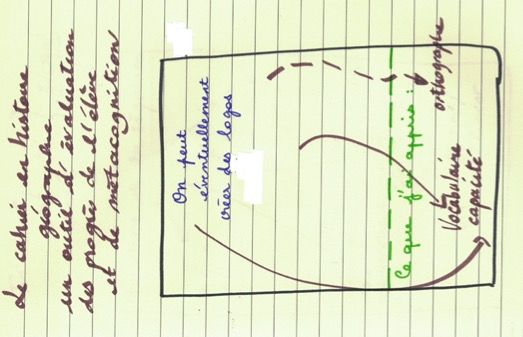 Le cahier en histoire
géographie
un outil d'évaluation
des progrès de l'élève
et de métacognition
On peut
éventuellement
créer des logos
Ce que j'ai appris :
orthographe
Vocabulaire
capacité